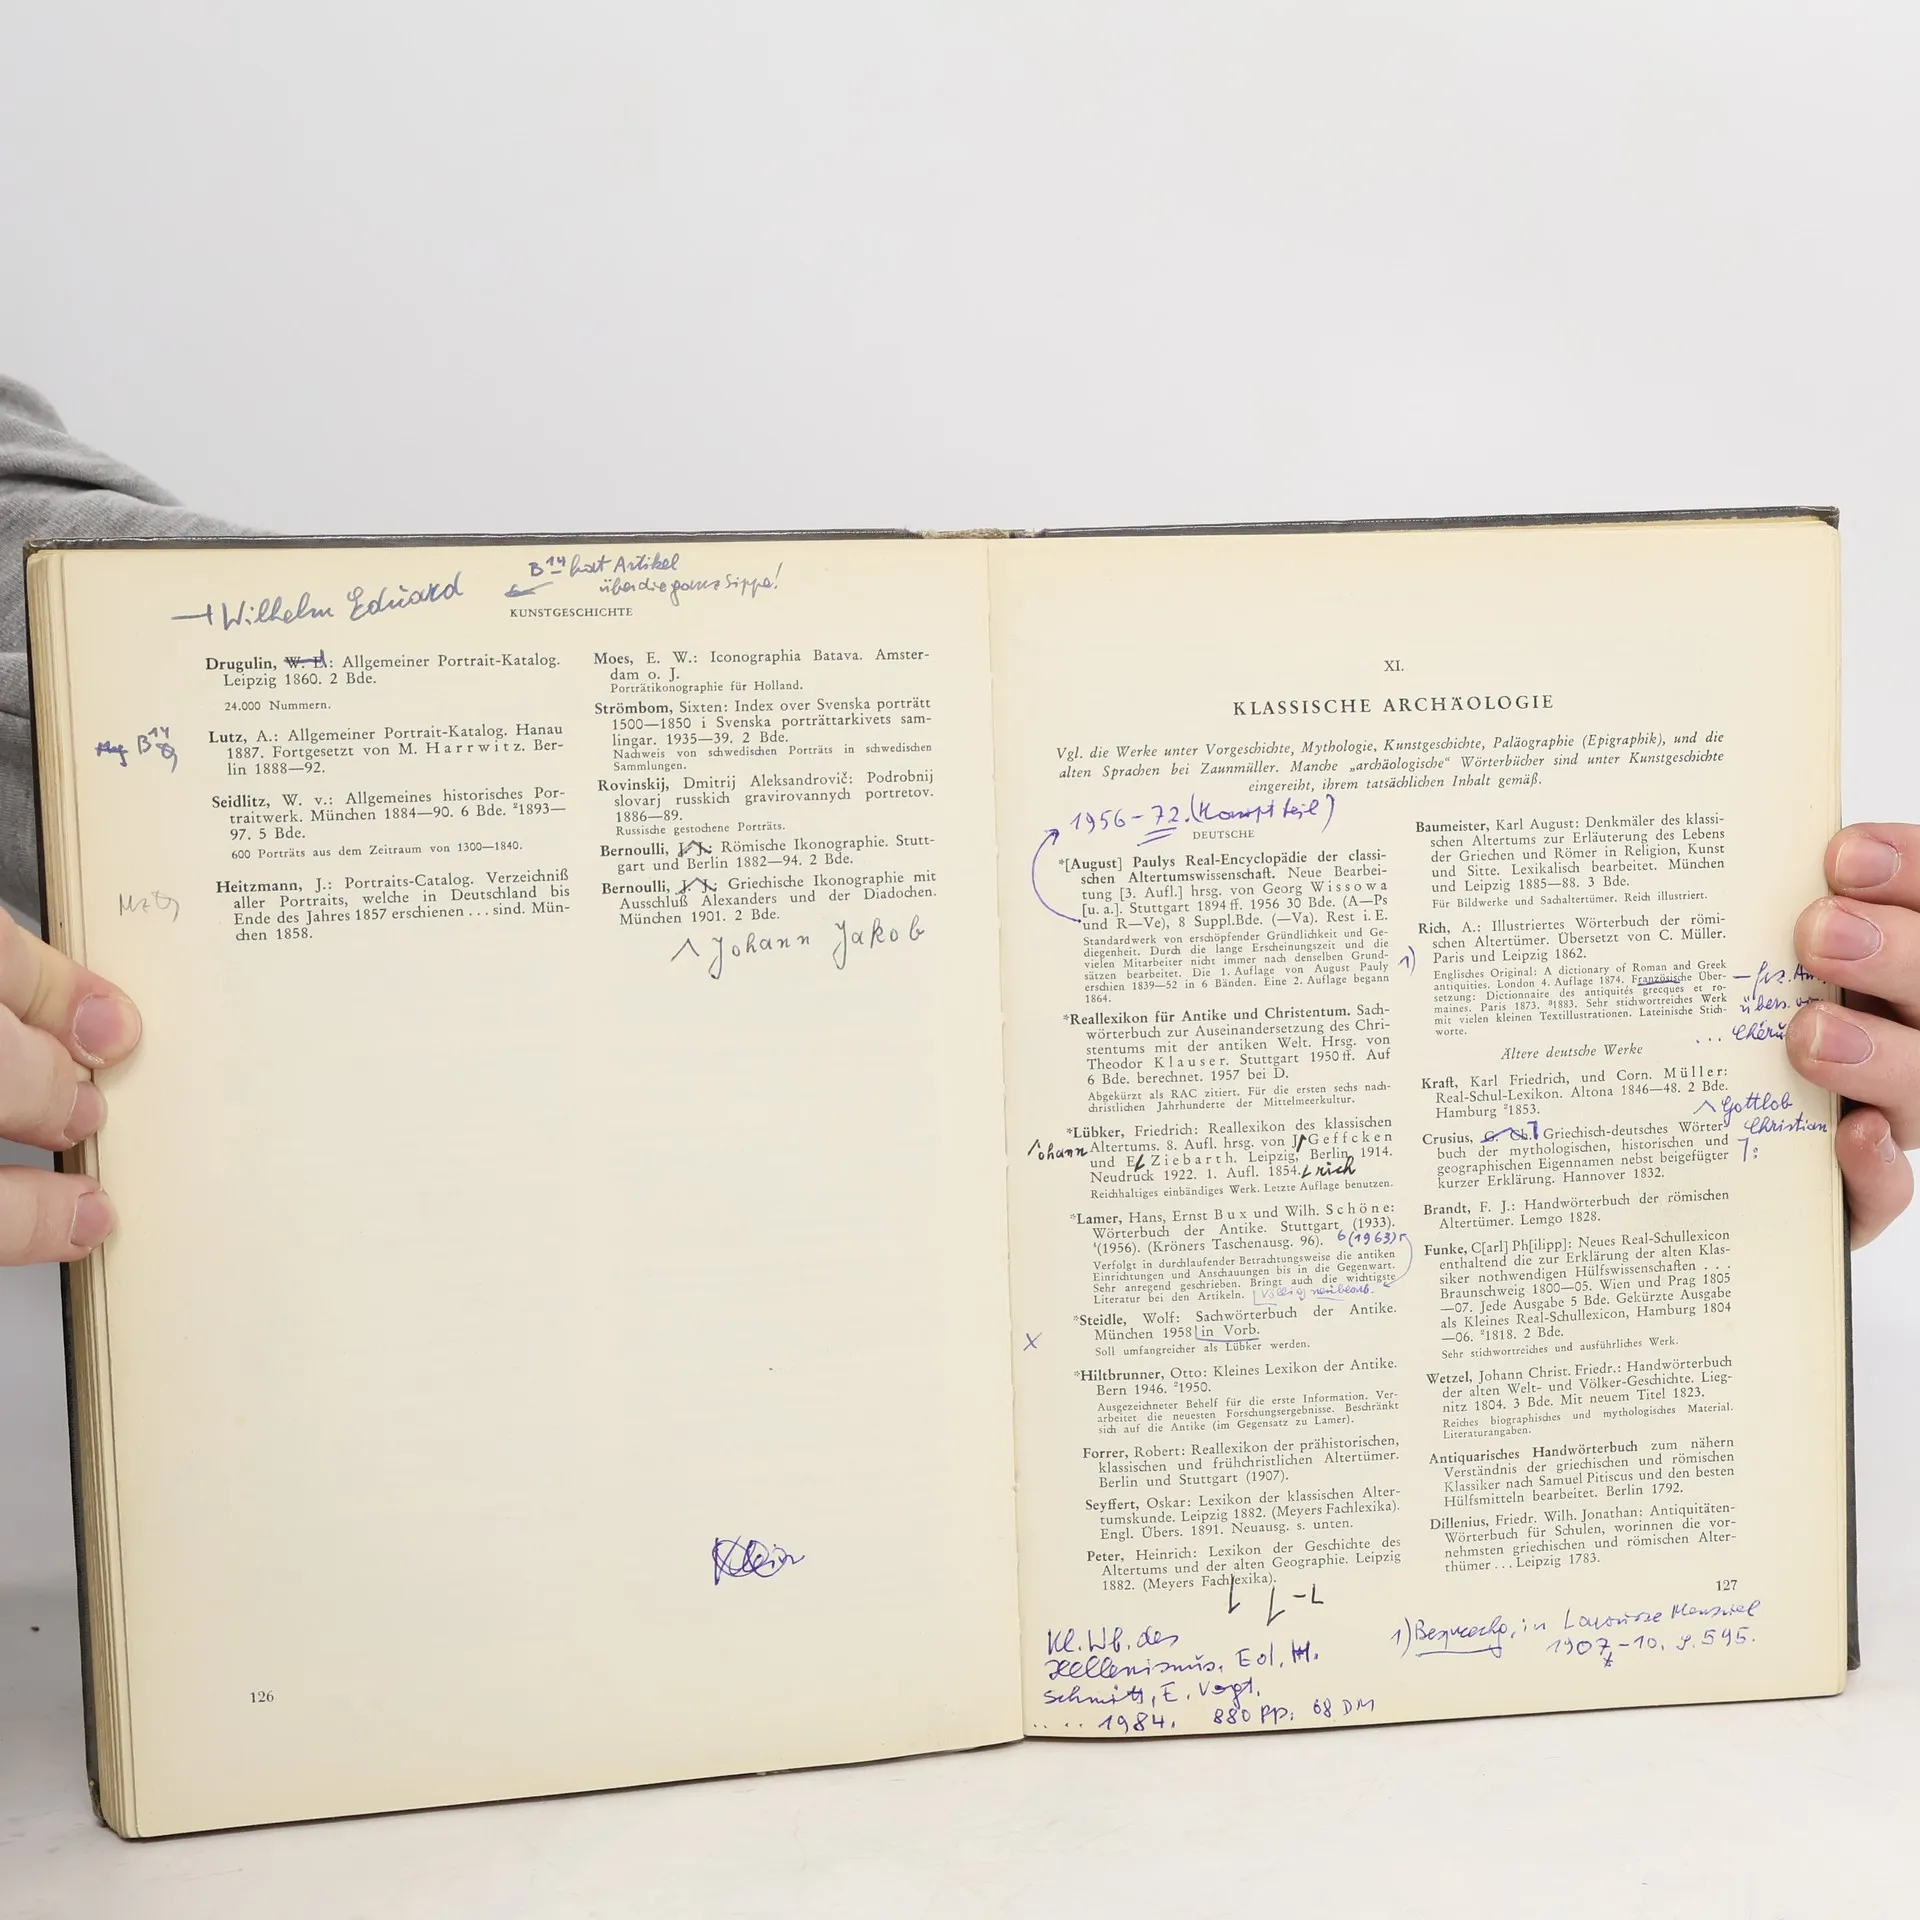 Wilhelm Eduard
B14 hat Artikel
über die ganze Sippe!
KUNSTGESCHICHTE
Drugulin, W. E.: Allgemeiner Portrait-Katalog.
Leipzig 1860. 2 Bde.
24.000 Nummern.
B14
Lutz, A.: Allgemeiner Portrait-Katalog. Hanau
1887. Fortgesetzt von M. Harrwitz. Ber-
lin 1888—92.
Seidlitz, W. v.: Allgemeines historisches Por-
traitwerk. München 1884—90. 6 Bde. ²1893—
97. 5 Bde.
600 Porträts aus dem Zeitraum von 1300—1840.
Heitzmann, J.: Portraits-Catalog. Verzeichniß
aller Portraits, welche in Deutschland bis
Ende des Jahres 1857 erschienen ... sind. Mün-
chen 1858.
Moes, E. W.: Iconographia Batava. Amster-
dam o. J.
Porträtikonographie für Holland.
Strömbom, Sixten: Index over Svenska porträtt
1500—1850 i Svenska porträttarkivets sam-
lingar. 1935—39. 2 Bde.
Nachweis von schwedischen Porträts in schwedischen
Sammlungen.
Rovinskij, Dmitrij Aleksandrovič: Podrobnij
slovarj russkich gravirovannych portretov.
1886—89.
Russische gestochene Porträts.
Bernoulli, J. J.: Römische Ikonographie. Stutt-
gart und Berlin 1882—94. 2 Bde.
Bernoulli, J. J.: Griechische Ikonographie mit
Ausschluß Alexanders und der Diadochen.
München 1901. 2 Bde.
Johann Jakob
126
XI.
KLASSISCHE ARCHÄOLOGIE
Vgl. die Werke unter Vorgeschichte, Mythologie, Kunstgeschichte, Paläographie (Epigraphik), und die
alten Sprachen bei Zaunmüller. Manche „archäologische“ Wörterbücher sind unter Kunstgeschichte
eingereiht, ihrem tatsächlichen Inhalt gemäß.
1956-72. (Hauptteil)
DEUTSCHE
*[August] Paulys Real-Encyclopädie der classi-
schen Altertumswissenschaft. Neue Bearbei-
tung [3. Aufl.] hrsg. von Georg Wissowa
[u. a.]. Stuttgart 1894 ff. 1956 30 Bde. (A—Ps
und R—Ve), 8 Suppl.Bde. (—Va). Rest i. E.
Standardwerk von erschöpfender Gründlichkeit und Ge-
diegenheit. Durch die lange Erscheinungszeit und die
vielen Mitarbeiter nicht immer nach denselben Grund-
sätzen bearbeitet. Die 1. Auflage von August Pauly
erschien 1839—52 in 6 Bänden. Eine 2. Auflage begann
1864.
*Reallexikon für Antike und Christentum. Sach-
wörterbuch zur Auseinandersetzung des Chri-
stentums mit der antiken Welt. Hrsg. von
Theodor Klauser. Stuttgart 1950 ff. Auf
6 Bde. berechnet. 1957 bei D.
Abgekürzt als RAC zitiert. Für die ersten sechs nach-
christlichen Jahrhunderte der Mittelmeerkultur.
*Lübker, Friedrich: Reallexikon des klassischen
Altertums. 8. Aufl. hrsg. von J. Geffcken
ohann
und E. Ziebarth. Leipzig, Berlin 1914.
Neudruck 1922. 1. Aufl. 1854. rich
Reichhaltiges einbändiges Werk. Letzte Auflage benutzen.
*Lamer, Hans, Ernst Bux und Wilh. Schöne:
Wörterbuch der Antike. Stuttgart (1933).
⁴(1956). (Kröners Taschenausg. 96). 6(1963)
Verfolgt in durchlaufender Betrachtungsweise die antiken
Einrichtungen und Anschauungen bis in die Gegenwart.
Sehr anregend geschrieben. Bringt auch die wichtigste
Literatur bei den Artikeln. völlig neubearb.
*Steidle, Wolf: Sachwörterbuch der Antike.
X
München 1958 in Vorb.
Soll umfangreicher als Lübker werden.
*Hiltbrunner, Otto: Kleines Lexikon der Antike.
Bern 1946. ²1950.
Ausgezeichneter Behelf für die erste Information. Ver-
arbeitet die neuesten Forschungsergebnisse. Beschränkt
sich auf die Antike (im Gegensatz zu Lamer).
Forrer, Robert: Reallexikon der prähistorischen,
klassischen und frühchristlichen Altertümer.
Berlin und Stuttgart (1907).
Seyffert, Oskar: Lexikon der klassischen Alter-
tumskunde. Leipzig 1882. (Meyers Fachlexika).
Engl. Übers. 1891. Neuausg. s. unten.
Peter, Heinrich: Lexikon der Geschichte des
Altertums und der alten Geographie. Leipzig
1882. (Meyers Fachlexika).
-L
Kl. Wb. des
Hellenismus. Ed. H.
Schmitt, E. Vogt.
.... 1984. 880 pp. 68 DM
Baumeister, Karl August: Denkmäler des klassi-
schen Altertums zur Erläuterung des Lebens
der Griechen und Römer in Religion, Kunst
und Sitte. Lexikalisch bearbeitet. München
und Leipzig 1885—88. 3 Bde.
Für Bildwerke und Sachaltertümer. Reich illustriert.
Rich, A.: Illustriertes Wörterbuch der römi-
schen Altertümer. Übersetzt von C. Müller.
1)
Paris und Leipzig 1862.
Englisches Original: A dictionary of Roman and Greek
antiquities. London 4. Auflage 1874. Französische Über-
setzung: Dictionnaire des antiquités grecques et ro-
maines. Paris 1873. ³1883. Sehr stichwortreiches Werk
mit vielen kleinen Textillustrationen. Lateinische Stich-
worte.
übers.
... Chéru
Ältere deutsche Werke
Kraft, Karl Friedrich, und Corn. Müller:
Real-Schul-Lexikon. Altona 1846—48. 2 Bde.
Hamburg ²1853.
Gottlob
Christian
Crusius, G. Ch. Griechisch-deutsches Wörter-
buch der mythologischen, historischen und
geographischen Eigennamen nebst beigefügter
kurzer Erklärung. Hannover 1832.
Brandt, F. J.: Handwörterbuch der römischen
Altertümer. Lemgo 1828.
Funke, C[arl] Ph[ilipp]: Neues Real-Schullexicon
enthaltend die zur Erklärung der alten Klas-
siker nothwendigen Hülfswissenschaften . . .
Braunschweig 1800—05. Wien und Prag 1805
—07. Jede Ausgabe 5 Bde. Gekürzte Ausgabe
als Kleines Real-Schullexicon, Hamburg 1804
—06. ²1818. 2 Bde.
Sehr stichwortreiches und ausführliches Werk.
Wetzel, Johann Christ. Friedr.: Handwörterbuch
der alten Welt- und Völker-Geschichte. Lieg-
nitz 1804. 3 Bde. Mit neuem Titel 1823.
Reiches biographisches und mythologisches Material.
Literaturangaben.
Antiquarisches Handwörterbuch zum nähern
Verständnis der griechischen und römischen
Klassiker nach Samuel Pitiscus und den besten
Hülfsmitteln bearbeitet. Berlin 1792.
Dillenius, Friedr. Wilh. Jonathan: Antiquitäten-
Wörterbuch für Schulen, worinnen die vor-
nehmsten griechischen und römischen Alter-
thümer ... Leipzig 1783.
127
1) Besprechg. in Larousse Mensuel
1907-10. S. 595.